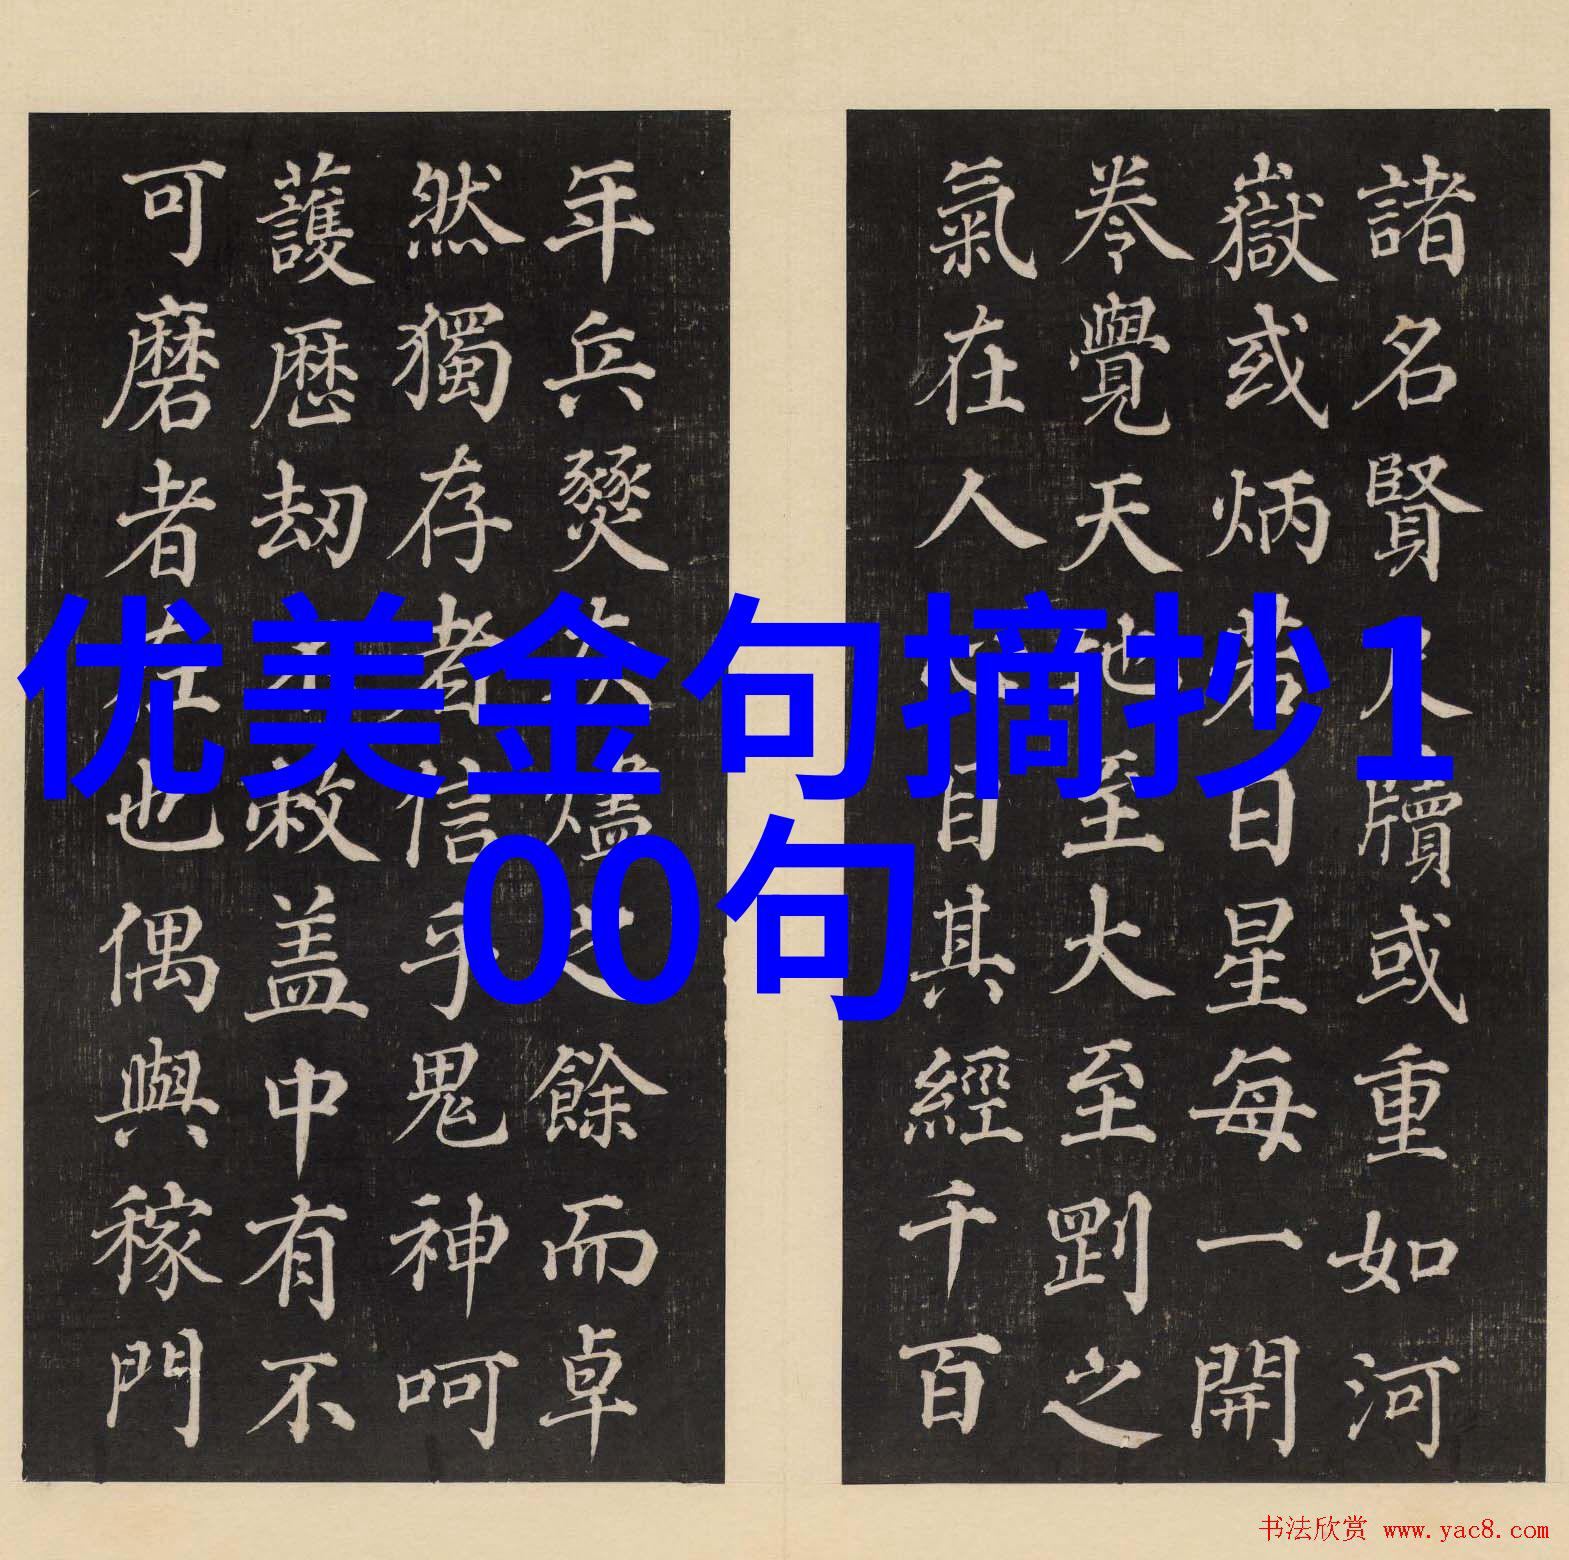 优美金句摘抄1
00句
諸名賢尺牘或重如河
嶽或炳若日星每一開
卷覺天地至大至剛之
氣在人心目其經千百
年兵燹灰燼之餘而卓
然獨存者信乎鬼神呵
護歷劫不敝蓋中有不
可磨者在也偶與稼門
书法欣赏 www.yac8.com